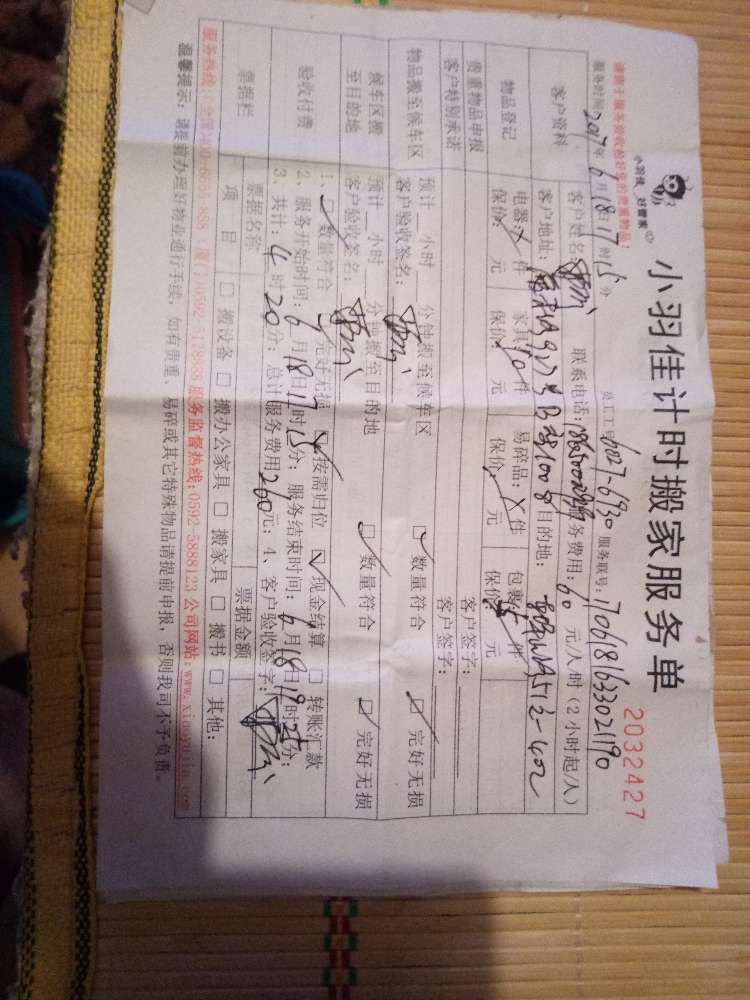 小羽佳 好管家
小羽佳计时搬家服务单
2032427
请您于服务前收检好您的贵重物品!
服务时间:2017年6月18日17时15分 员工工号:6027-6930 服务联号:170618163302190
客户资料 客户姓名: 联系电话: 服务费用:60元/人时(2小时起/人)
客户地址: 目的地:
物品登记 电器: 件 家具:10件 易碎品:X件 包裹: 件
保价: 元 保价: 元 保价: 元 保价: 元
贵重物品申报 客户签字:
客户特别承诺 客户签字:
物品搬至候车区 预计 小时 分钟搬至候车区 □数量符合 □完好无损
客户验收签名:
候车区搬至目的地 预计 小时 分钟搬至目的地 □数量符合 □完好无损
客户验收签名:
验收付费 1、□数量符合 □完好无损 □按需归位 □现金结算 □转账汇款
2、服务开始时间:6月18日17时15分;服务结束时间:6月18日19时25分;
3、共计:4时20分;总计服务费用260元;4、客户验收签字:
票据栏 票据名称 票据金额
项目 □搬设备 □搬办公家具 □搬家具 □搬书 □其他:
服务热线:全国400-6055-888(厦门)0592-5188888 服务监督热线:0592-5888123 公司网站:www.xiaoyujia.com
温馨提示:请提前办理好物业通行手续,如有贵重、易碎或其它特殊物品请提前申报,否则我司不予负责。